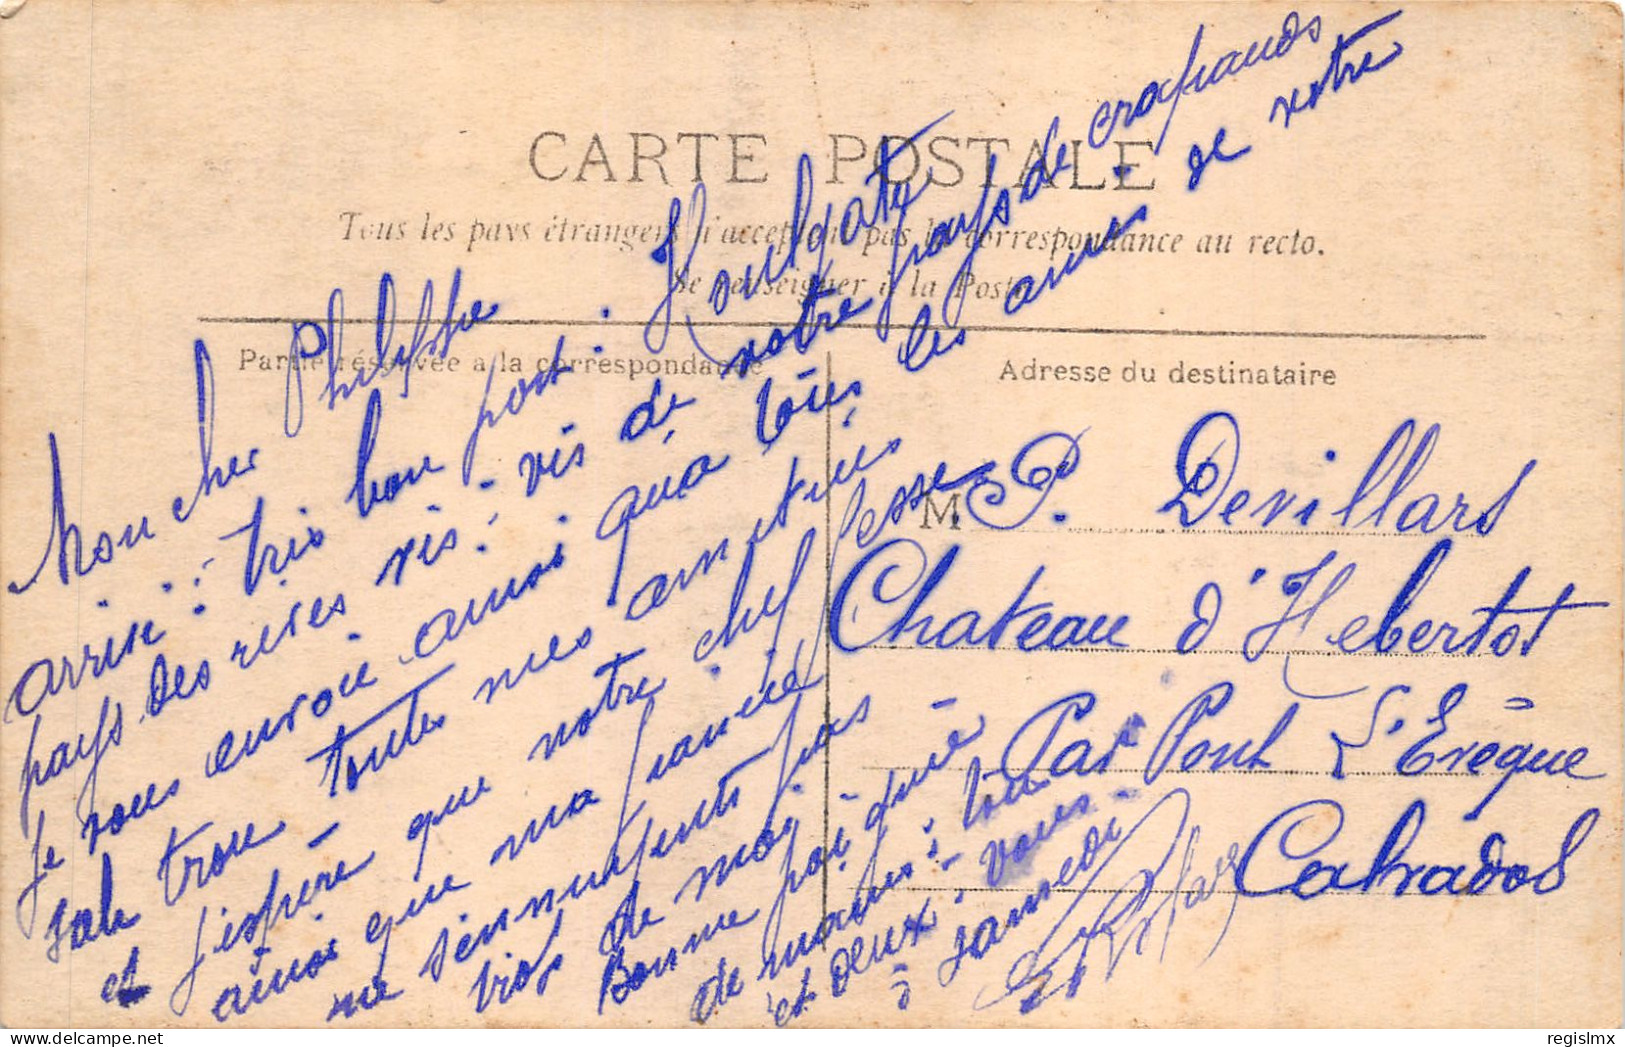 CARTE POSTALE
Tous les pays étrangers n'acceptent pas la correspondance au recto.
Se renseigner à la Poste
Partie réservée à la correspondance
Adresse du destinataire
Houlgate
Mon cher Philippe
arrivé très bon port.
pays des rives vis-à-vis de votre pays de crapauds
Je vous envoie ainsi qu'à tous les amis de votre
sale trou toutes mes amitiés
et j'espère que votre chef
ainsi que ma fiancée
ne s'ennuient pas
trop de moi
Bonne poignée
de mains à tous
et deux à vous
à samedi
M. P. Devillars
Chateau d'Hebertot
Par Pont L'Evêque
Calvados
regislmx